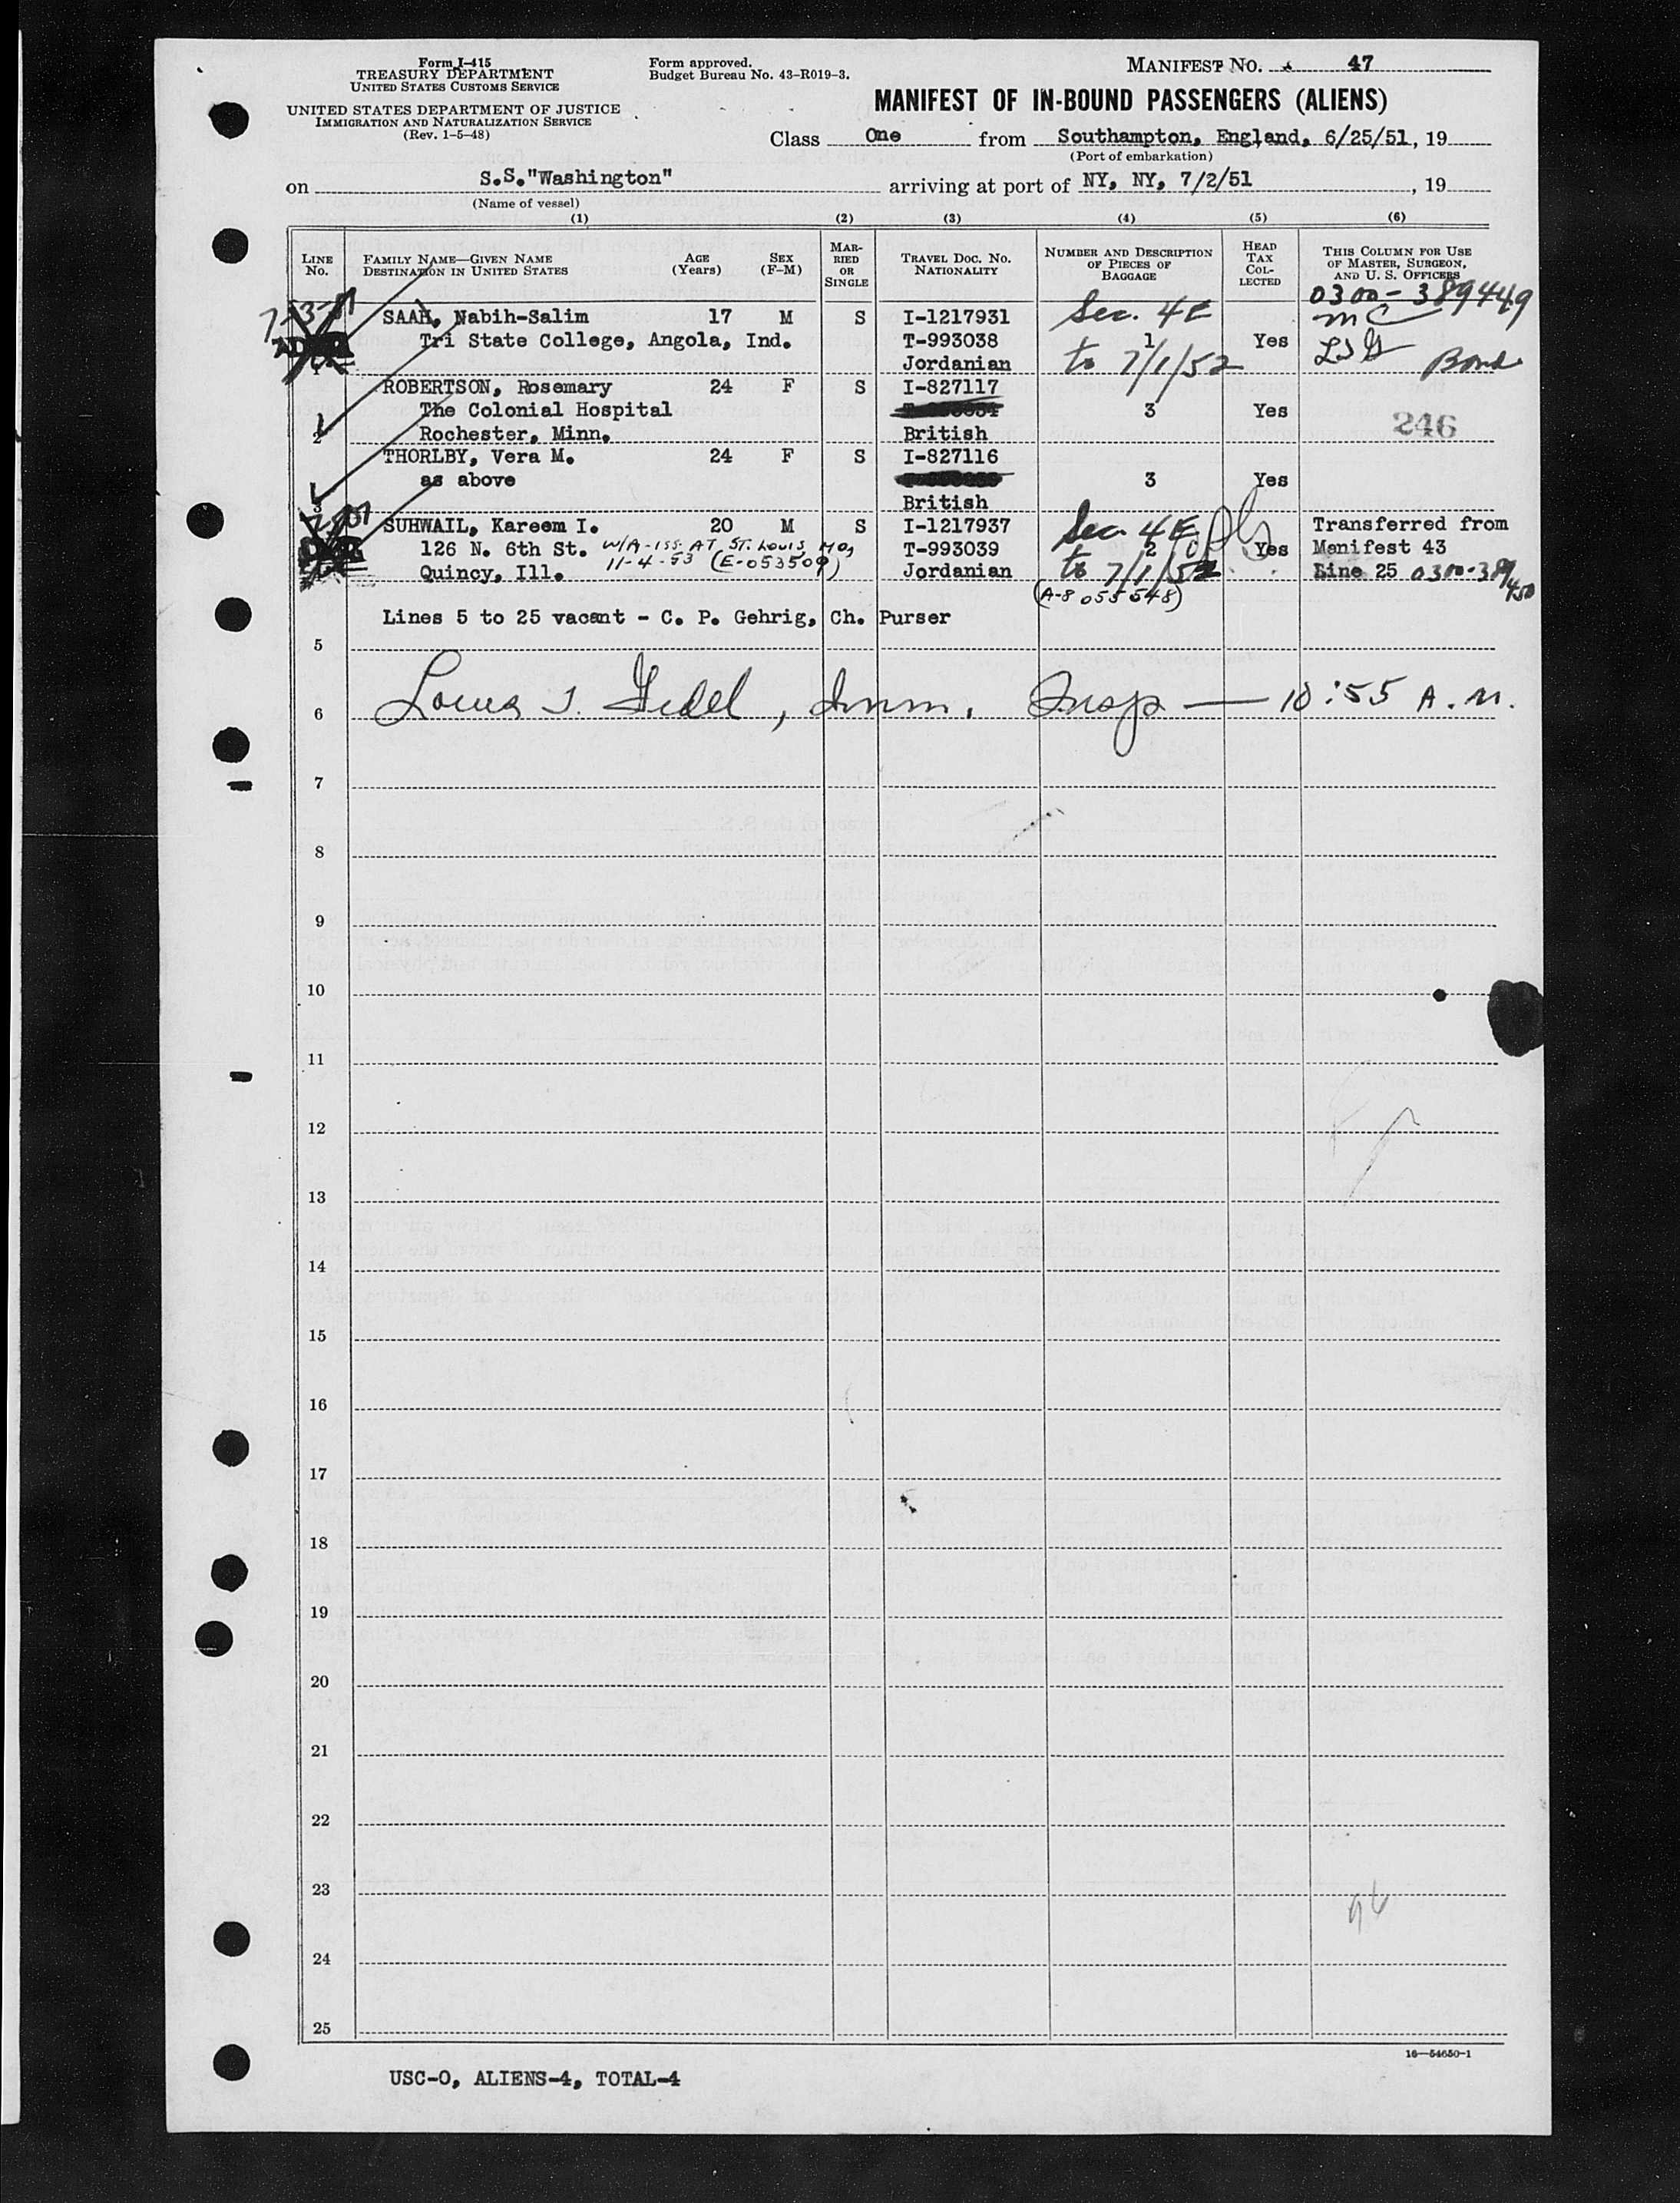 Form I-415
TREASURY DEPARTMENT
UNITED STATES CUSTOMS SERVICE
UNITED STATES DEPARTMENT OF JUSTICE
IMMIGRATION AND NATURALIZATION SERVICE
(Rev. 1-5-48)
Form approved.
Budget Bureau No. 43-R019-3.
MANIFEST NO. 47
MANIFEST OF IN-BOUND PASSENGERS (ALIENS)
Class One from Southampton, England, 6/25/51, 19
(Port of embarkation)
on S.S."Washington" arriving at port of NY, NY, 7/2/51, 19
(Name of vessel)
(1) (2) (3) (4) (5) (6)
LINE No. FAMILY NAME—GIVEN NAME DESTINATION IN UNITED STATES AGE (Years) SEX (F-M) MARRIED OR SINGLE TRAVEL DOC. NO. NATIONALITY NUMBER AND DESCRIPTION OF PIECES OF BAGGAGE HEAD TAX COLLECTED THIS COLUMN FOR USE OF MASTER, SURGEON, AND U. S. OFFICERS
0300-389449
SAAH, Nabih-Salim 17 M S I-1217931 Sec. 4E
Tri State College, Angola, Ind. T-993038 1 Yes
Jordanian to 7/1/52 Bond
ROBERTSON, Rosemary 24 F S I-827117
The Colonial Hospital 3 Yes 246
2 Rochester, Minn. British
THORLBY, Vera M. 24 F S I-827116
as above 3 Yes
British
SUHWAIL, Kareem I. 20 M S I-1217937 Sec. 4E Transferred from
126 N. 6th St. W/A-ISS. AT ST. LOUIS, MO, T-993039 2 Yes Manifest 43
Quincy, Ill. 11-4-53 (E-053509) Jordanian to 7/1/52 Line 25 0300-389450
(A-8 055548)
Lines 5 to 25 vacant - C. P. Gehrig, Ch. Purser
5
6 Imm. Insp — 10:55 A.M.
7
8
9
10
11
12
13
14
15
16
17
18
19
20
21
22
23
24
25
16—54650-1
USC-0, ALIENS-4, TOTAL-4